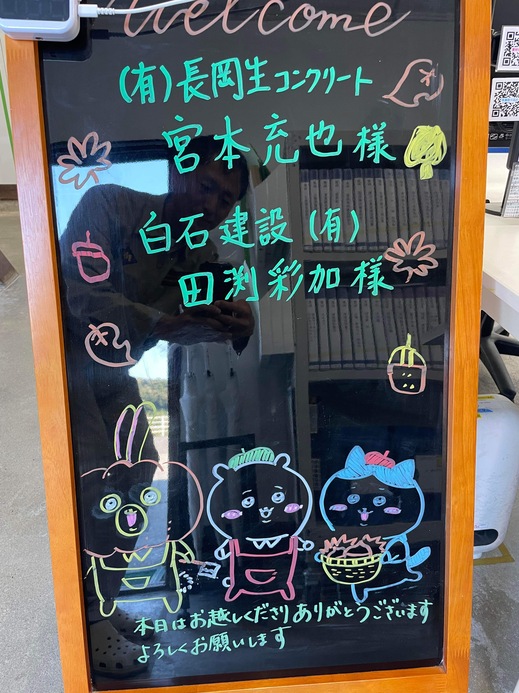 Welcome
(有)長岡生コンクリート
宮本充也様
白石建設(有)
田渕彩加様
本日はお越しくださりありがとうございます
よろしくお願いします